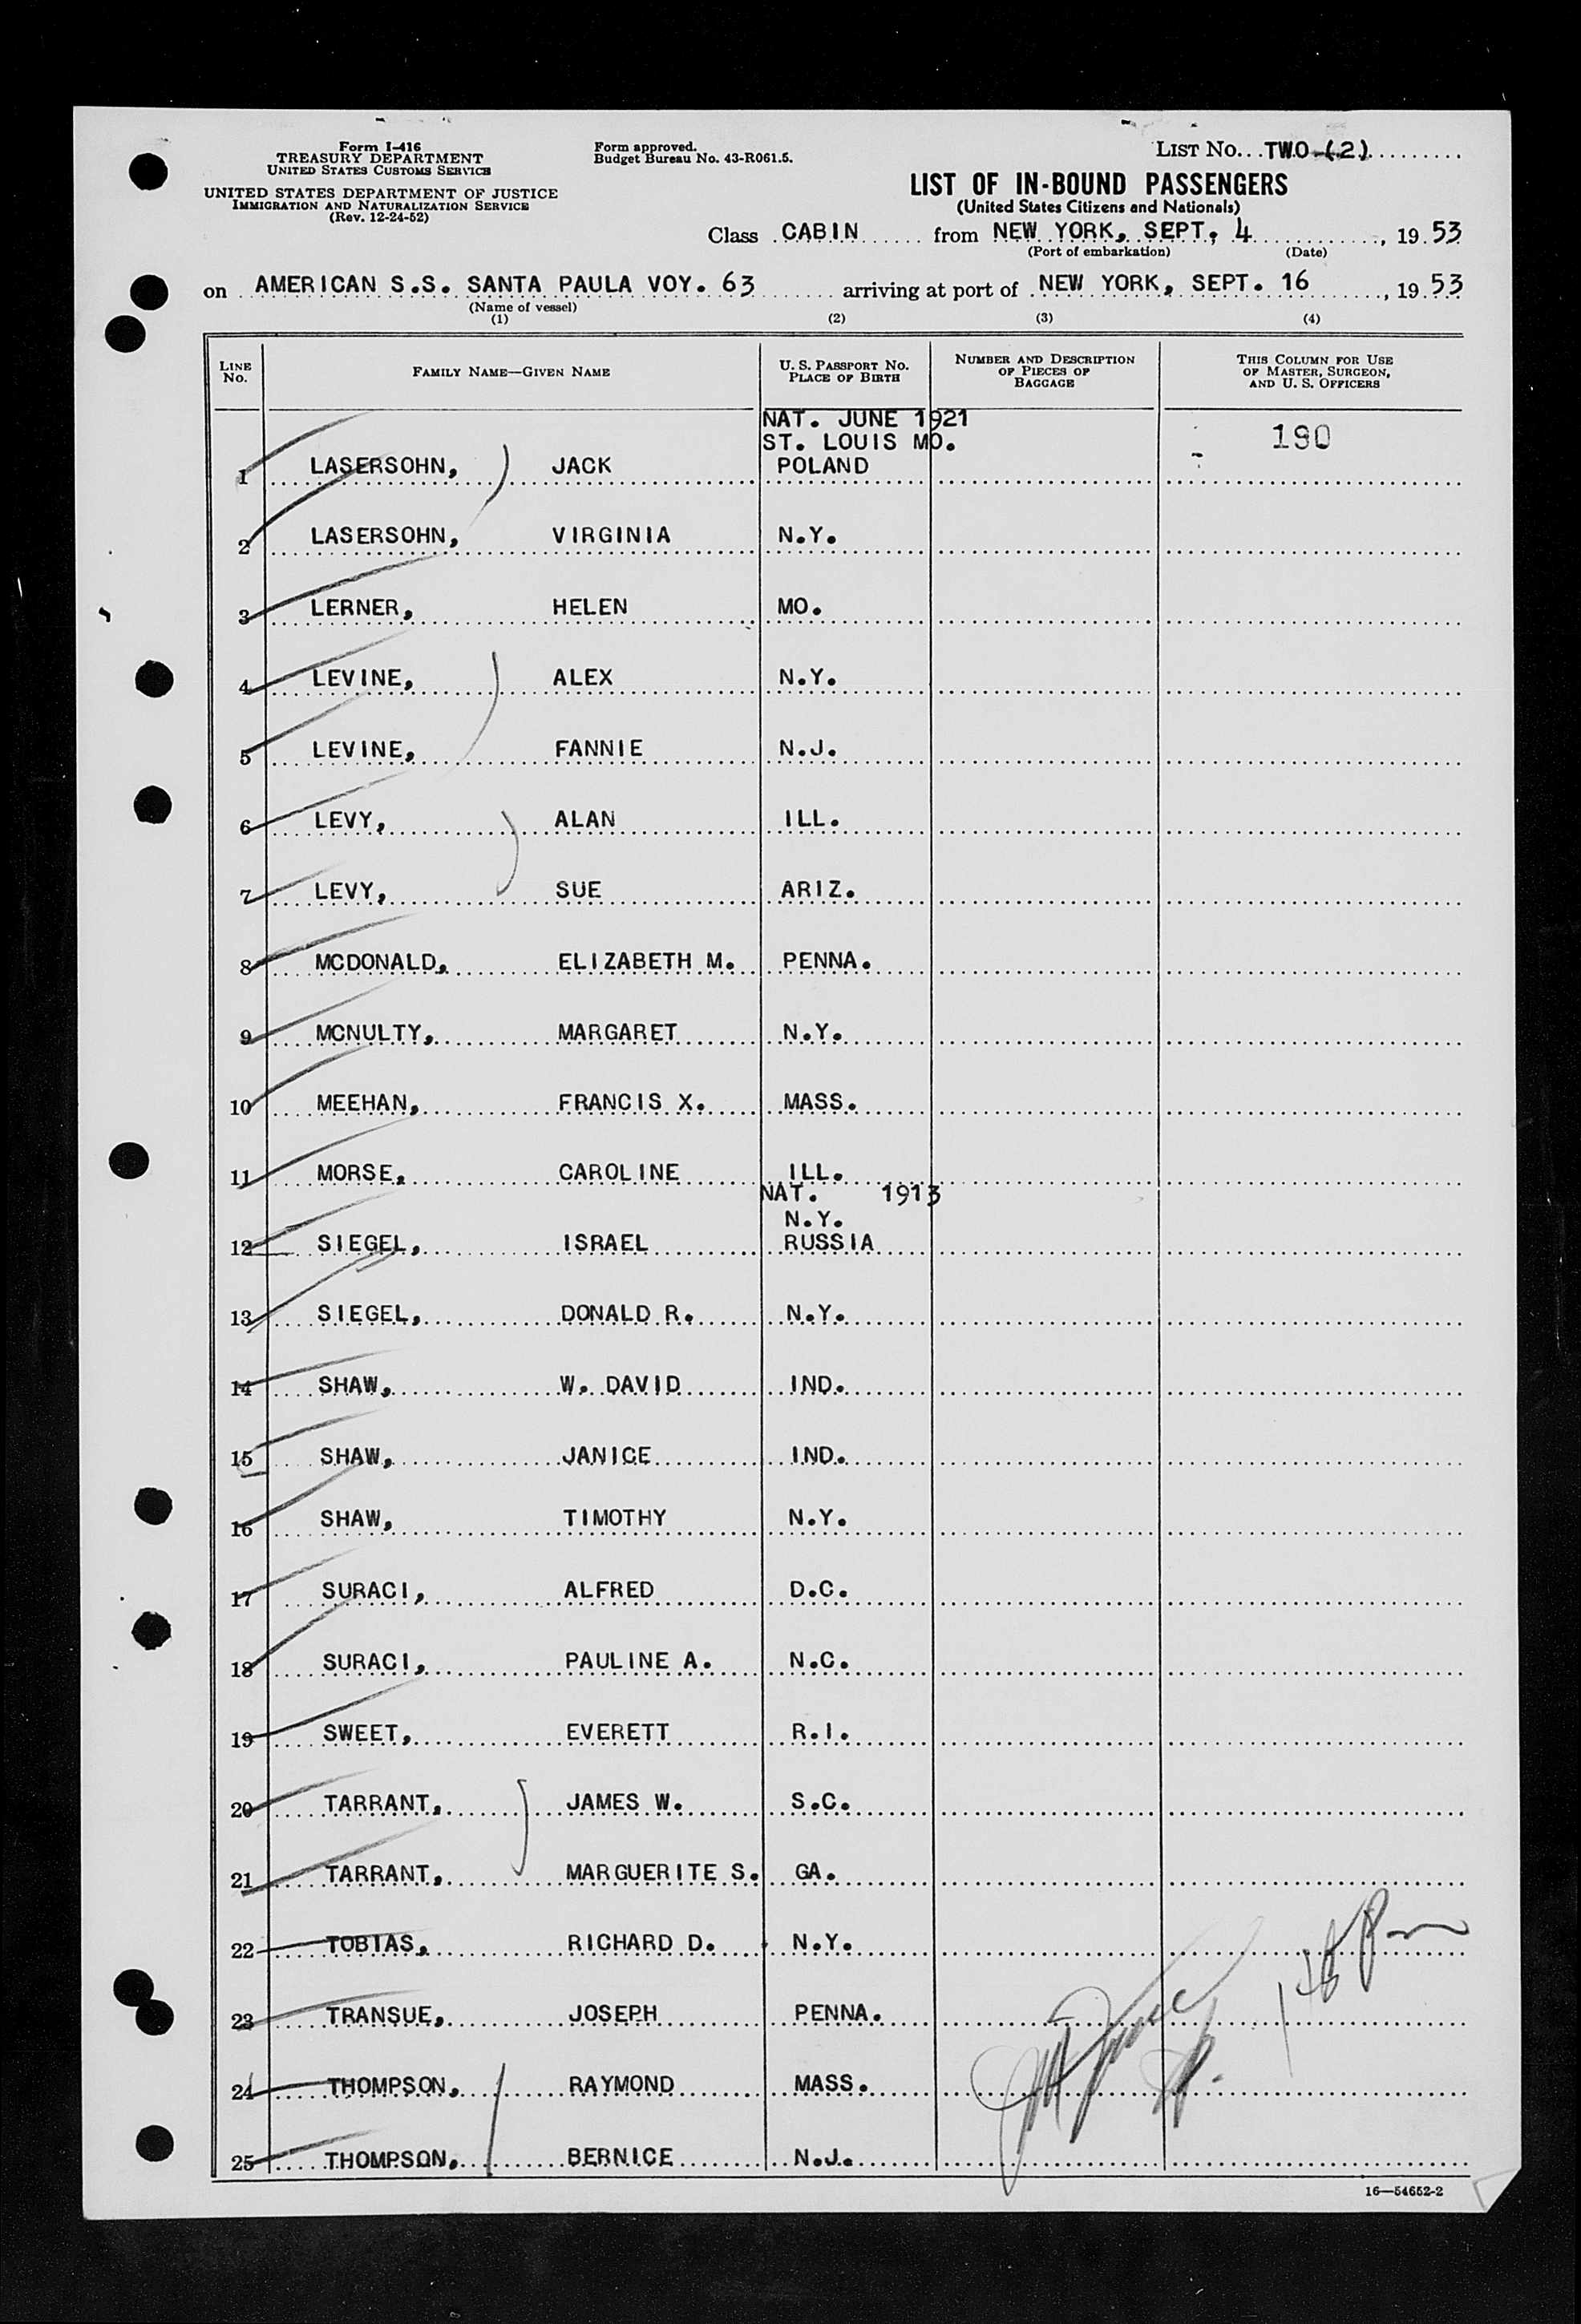 Form I-416
TREASURY DEPARTMENT
UNITED STATES CUSTOMS SERVICE
UNITED STATES DEPARTMENT OF JUSTICE
IMMIGRATION AND NATURALIZATION SERVICE
(Rev. 12-24-52)
Form approved.
Budget Bureau No. 43-R061.5.
LIST No. TWO (2)
LIST OF IN-BOUND PASSENGERS
(United States Citizens and Nationals)
Class CABIN from NEW YORK, SEPT, 4, 19 53
(Port of embarkation) (Date)
on AMERICAN S.S. SANTA PAULA VOY. 63 arriving at port of NEW YORK, SEPT. 16, 19 53
(Name of vessel)
(1) (2) (3) (4)
LINE No. FAMILY NAME—GIVEN NAME U. S. PASSPORT NO. PLACE OF BIRTH NUMBER AND DESCRIPTION OF PIECES OF BAGGAGE THIS COLUMN FOR USE OF MASTER, SURGEON, AND U. S. OFFICERS
NAT. JUNE 1921
ST. LOUIS MO. 190
1 LASERSOHN, JACK POLAND
2 LASERSOHN, VIRGINIA N.Y.
3 LERNER, HELEN MO.
4 LEVINE, ALEX N.Y.
5 LEVINE, FANNIE N.J.
6 LEVY, ALAN ILL.
7 LEVY, SUE ARIZ.
8 MCDONALD, ELIZABETH M. PENNA.
9 MCNULTY, MARGARET N.Y.
10 MEEHAN, FRANCIS X. MASS.
11 MORSE, CAROLINE ILL.
NAT. 1913
N.Y.
12 SIEGEL, ISRAEL RUSSIA
13 SIEGEL, DONALD R. N.Y.
14 SHAW, W. DAVID IND.
15 SHAW, JANICE IND.
16 SHAW, TIMOTHY N.Y.
17 SURACI, ALFRED D.C.
18 SURACI, PAULINE A. N.C.
19 SWEET, EVERETT R.I.
20 TARRANT, JAMES W. S.C.
21 TARRANT, MARGUERITE S. GA.
22 TOBIAS, RICHARD D. N.Y.
23 TRANSUE, JOSEPH PENNA.
24 THOMPSON, RAYMOND MASS.
25 THOMPSON, BERNICE N.J.
16—54652-2